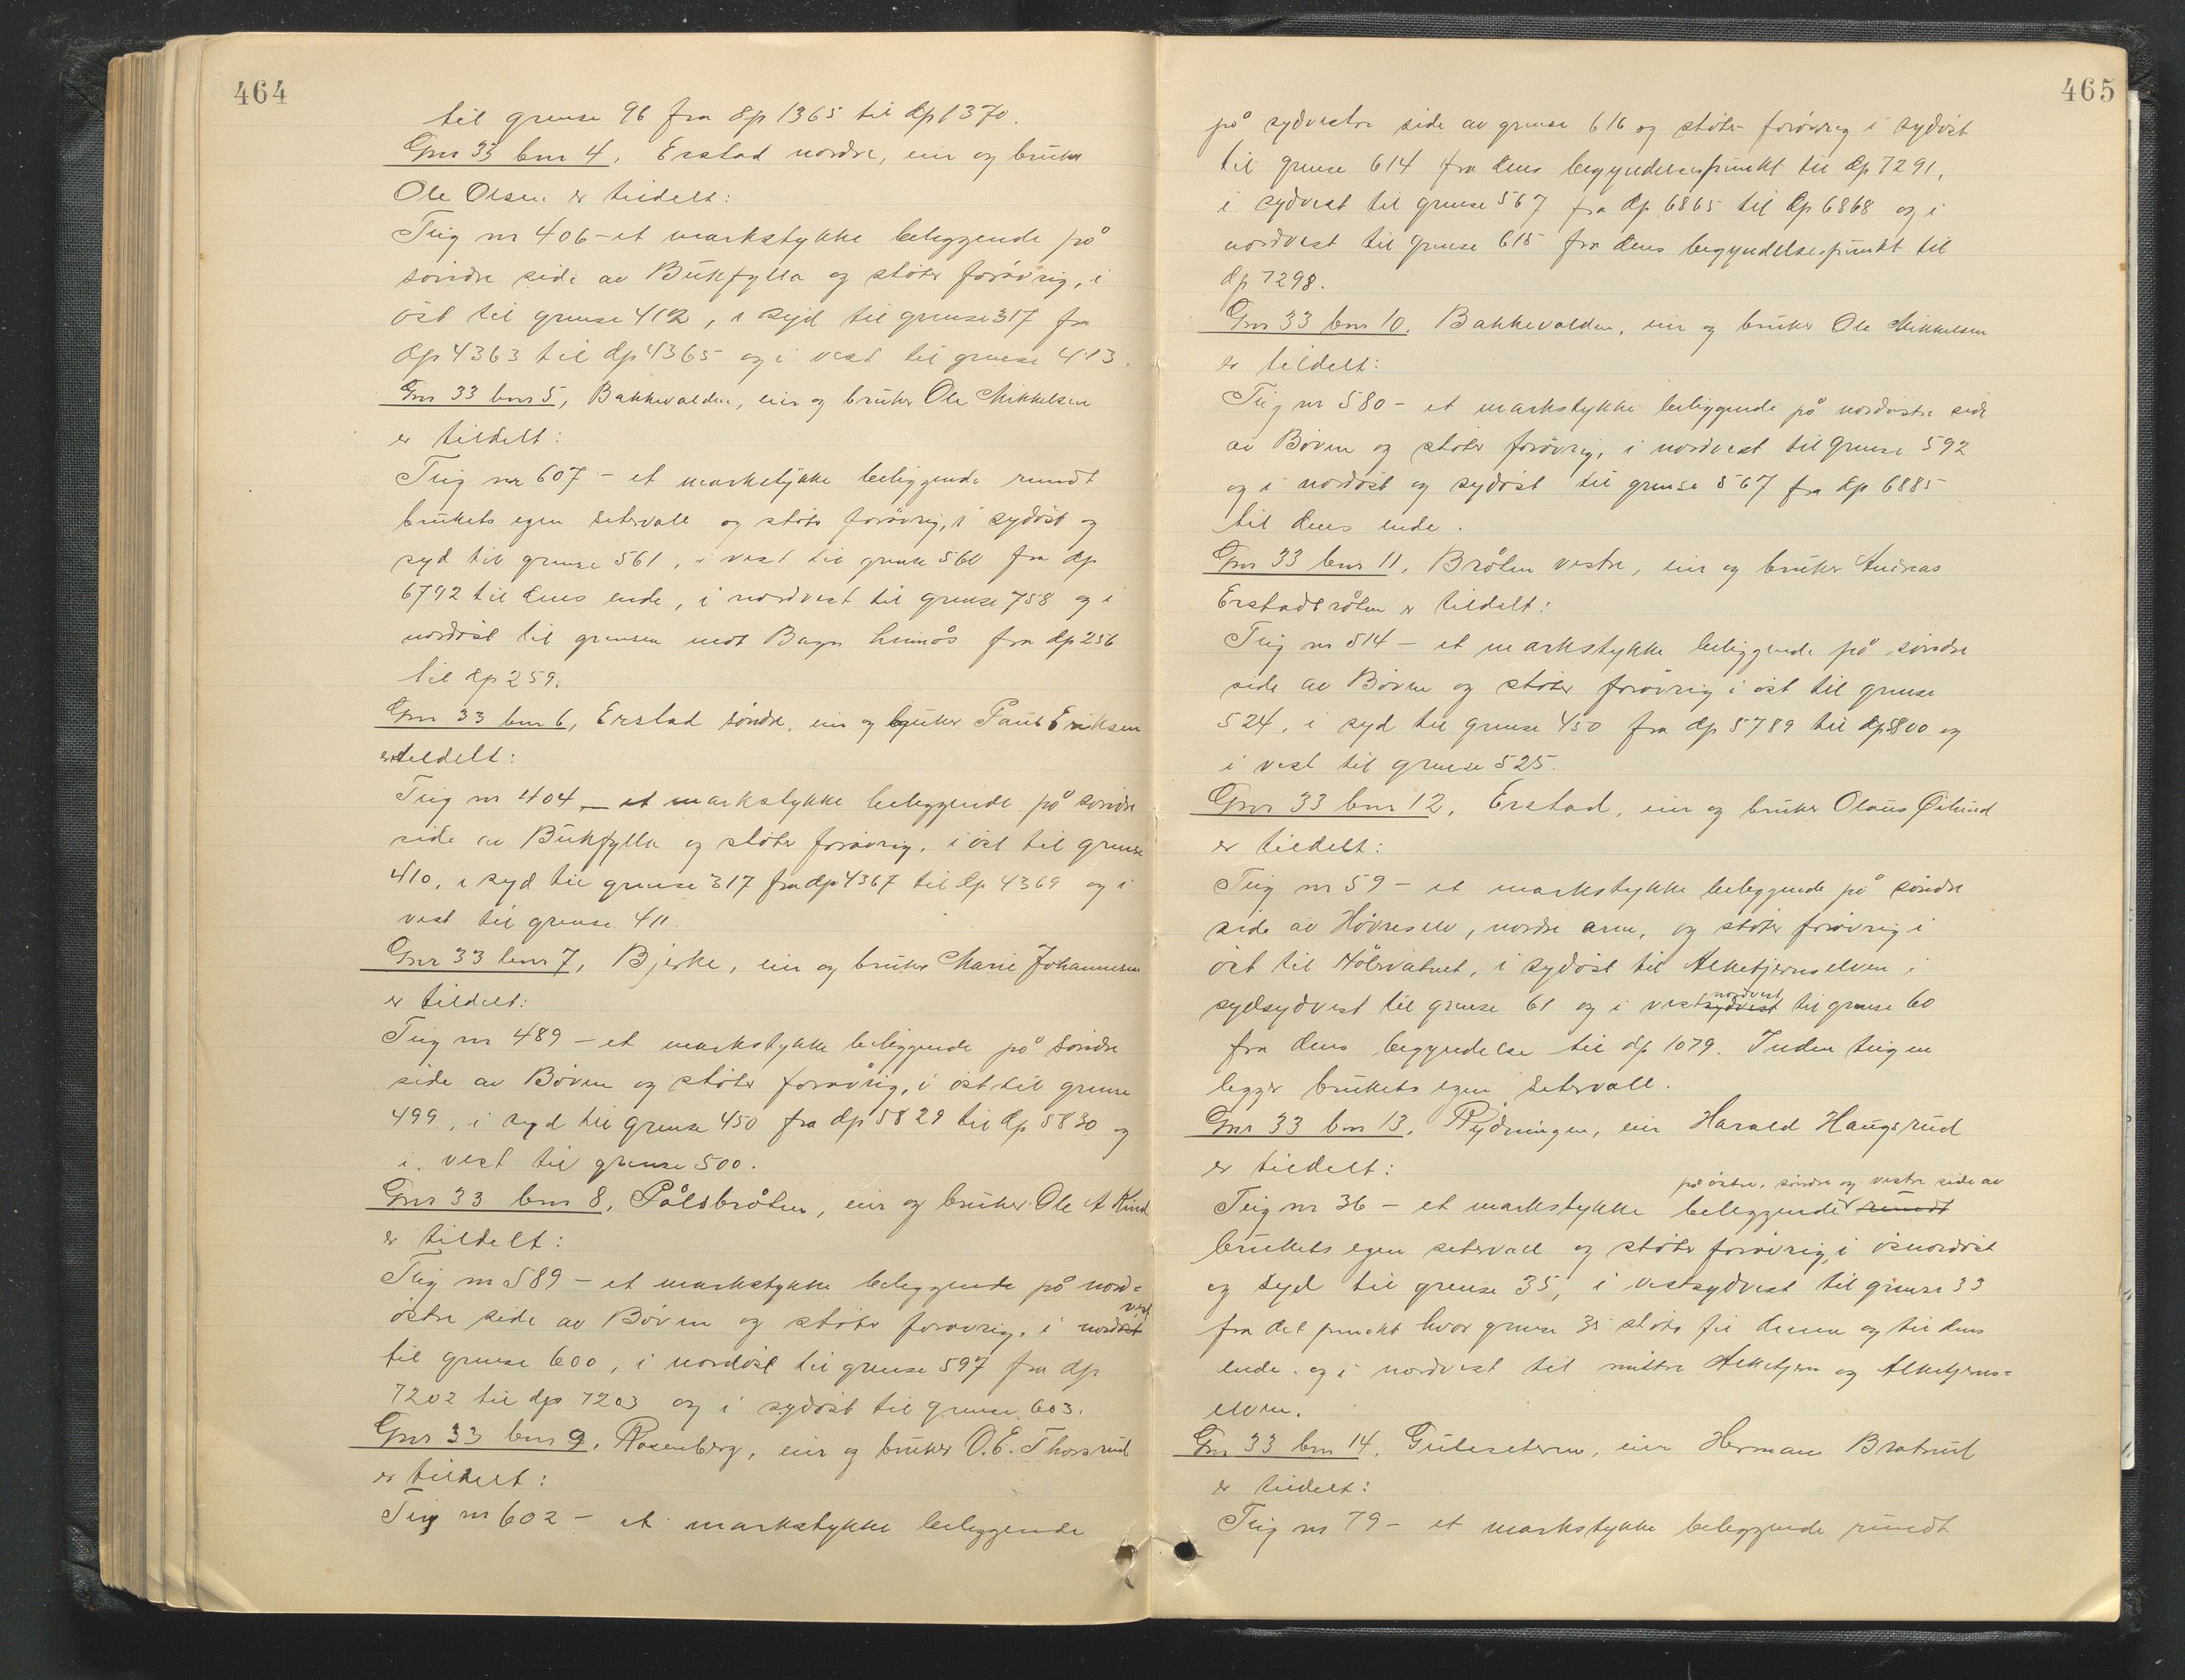 464
til grense 96 fra dp 1365 til dp 1370.
Gnr 33 bnr 4, Erstad nordre, eier og bruker
Ole Olsen er tildelt:
Teig nr 406 - et markstykke beliggende på
söndre side av Bukfylla og stöter forövrig, i
öst til grense 412, i syd til grense 317 fra
dp 4363 til dp 4365 og i vest til grense 413.
Gnr 33 bnr 5, Bakkevolden, eier og bruker Ole Mikkelsen
er tildelt:
Teig nr 607 - et markstykke beliggende rundt
brukets egen setervall og stöter forövrig, i sydöst og
syd til grense 561, i vest til grense 560 fra dp
6792 til dens ende, i nordvest til grense 758 og i
nordöst til grensen mot Bagn fra dp 256
til dp 259.
Gnr 33 bnr 6, Erstad söndre, eier og bruker Paul Eriksen
er tildelt:
Teig nr 404 - et markstykke beliggende på söndre
side av Bukfylla og stöter forövrig, i öst til grense
410, i syd til grense 317 fra dp 4367 til dp 4369 og i
vest til grense 411.
Gnr 33 bnr 7, Bjerke, eier og bruker Marie Johannesen
er tildelt:
Teig nr 489 - et markstykke beliggende på söndre
side av Böven og stöter forövrig, i öst til grense
499, i syd til grense 450 fra dp 5829 til dp 5830 og
i vest til grense 500.
Gnr 33 bnr 8, Pålsbråten, eier og bruker Ole A Kind
er tildelt:
Teig nr 589 - et markstykke beliggende på nord=
östre side av Böven og stöter forövrig, i nordöst vest
til grense 600, i nordöst til grense 597 fra dp
7202 til dp 7203 og i sydöst til grense 603.
Gnr 33 bnr 9, Rosenberg, eier og bruker O.E. Thorsrud
er tildelt:
Teig nr 602 - et markstykke beliggende
465
på sydvestre side av grense 616 og stöter forövrig i sydöst
til grense 614 fra dens begyndelsespunkt til dp 7291,
i sydvest til grense 567 fra dp 6865 til dp 6868 og i
nordvest til grense 615 fra dens begyndelsespunkt til
dp 7298.
Gnr 33 bnr 10, Bakkevolden, eier og bruker Ole Mikkelsen
er tildelt:
Teig nr 580 - et markstykke beliggende på nordöstre side
av Böven og stöter forövrig, i nordvest til grense 592
og i nordöst og sydöst til grense 567 fra dp 6885
til dens ende.
Gnr 33 bnr 11, Bråten vestre, eier og bruker Andreas
Erstadbråten er tildelt:
Teig nr 514 - et markstykke beliggende på söndre
side av Böven og stöter forövrig i öst til grense
524, i syd til grense 450 fra dp 5789 til dp 5800 og
i vest til grense 525.
Gnr 33 bnr 12, Erstad, eier og bruker Olaus Ölund
er tildelt:
Teig nr 59 - et markstykke beliggende på söndre
side av Hövreselv, nordre arm, og stöter forövrig i
öst til Nölsvatnet, i sydöst til Alketjernselven i
sydsydvest til grense 61 og i vestsydvest nordvest til grense 60
fra dens begyndelse til dp 1079. Inden teigen
ligger brukets egen setervall.
Gnr 33 bnr 13, Rydningen, eier Harald Haugsrud
er tildelt:
på östre, söndre og vestre side av
Teig nr 36 - et markstykke beliggende rundt
brukets egen setervall og stöter forövrig, i östnordöst
og syd til grense 35, i vestsydvest til grense 33
fra det punkt hvor grense 35 stöter til denne og til dens
ende og i nordvest til mittre Alketjern og Alketjerns=
elven.
Gnr 33 bnr 14, Guleseteren, eier Herman Bratrud
er tildelt:
Teig nr 79 - et markstykke beliggende rundt